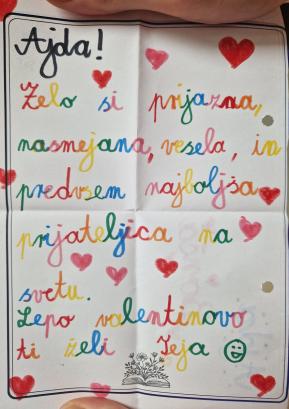 Ajda!
Zelo si prijazna,
nasmejana, vesela, in
predvsem najboljša
prijateljica na
svetu.
Lepo valentinovo
ti želi Teja